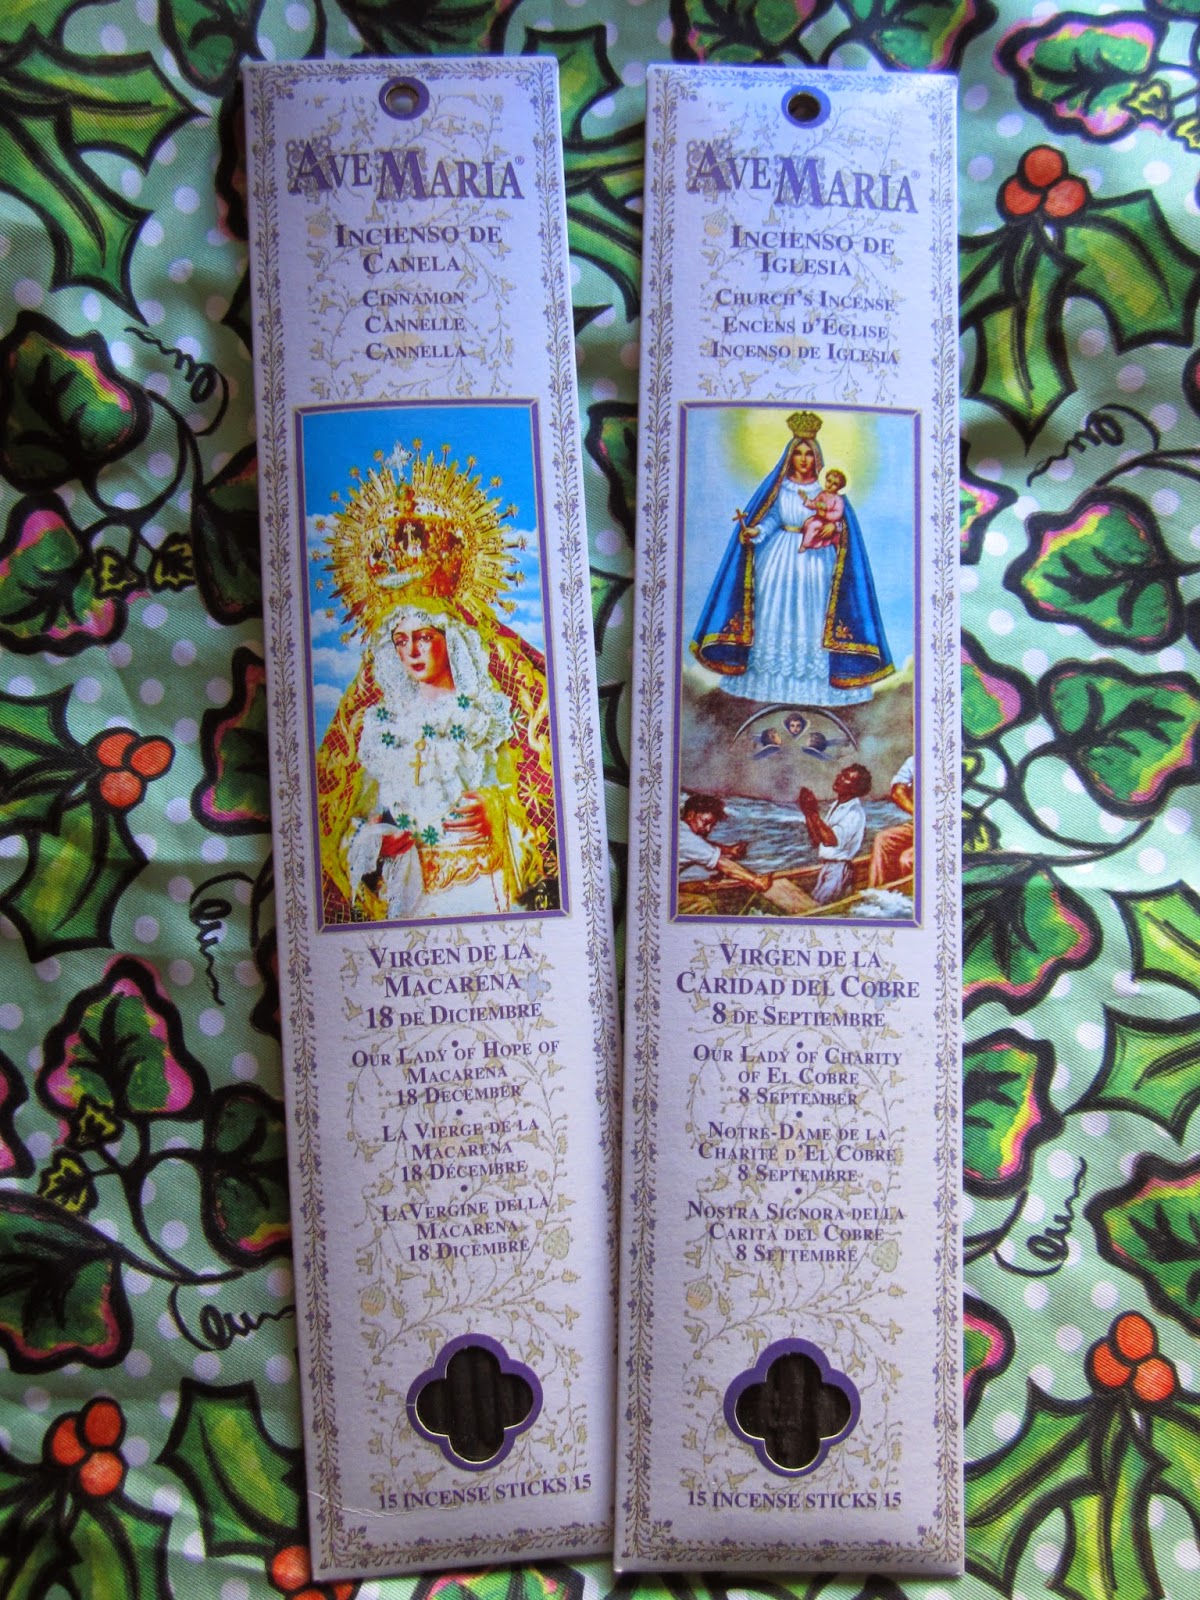 AVE MARIA®
INCIENSO DE
CANELA
CINNAMON
CANNELLE
CANNELLA
VIRGEN DE LA
MACARENA
18 DE DICIEMBRE
•
OUR LADY OF HOPE OF
MACARENA
18 DECEMBER
•
LA VIERGE DE LA
MACARENA
18 DÉCEMBRE
•
LA VERGINE DELLA
MACARENA
18 DICEMBRE
15 INCENSE STICKS 15
AVE MARIA®
INCIENSO DE
IGLESIA
CHURCH'S INCENSE
ENCENS D'EGLISE
INCENSO DE IGLESIA
VIRGEN DE LA
CARIDAD DEL COBRE
8 DE SEPTIEMBRE
•
OUR LADY OF CHARITY
OF EL COBRE
8 SEPTEMBER
•
NOTRE-DAME DE LA
CHARITÉ D'EL COBRE
8 SEPTEMBRE
•
NOSTRA SIGNORA DELLA
CARITÀ DEL COBRE
8 SETTEMBRE
15 INCENSE STICKS 15